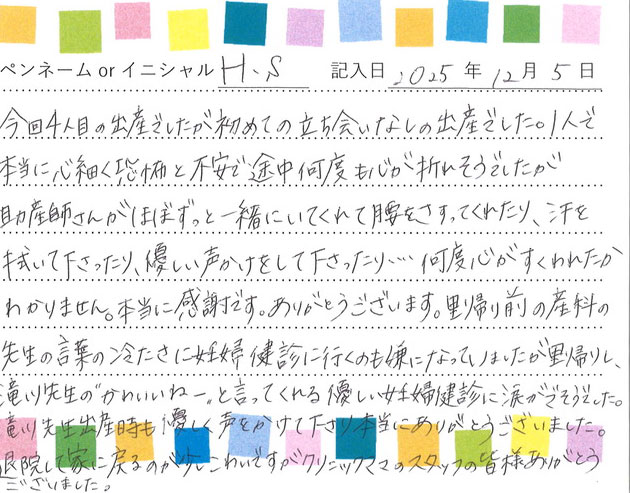 ペンネーム or イニシャル H.S 記入日 2025年12月5日
今回4人目の出産でしたが初めての立ち会いなしの出産でした。1人で
本当に心細く恐怖と不安で途中何度も心が折れそうでしたが
助産師さんがほぼずっと一緒にいてくれて腰をさすってくれたり、汗を
拭いて下さったり、優しい声かけをして下さったり…何度心がすくわれたか
わかりません。本当に感謝です。ありがとうございます。里帰り前の産科の
先生の言葉の冷たさに妊婦健診に行くのも嫌になっていましたが里帰りし、
滝川先生の"かわいいねー。と言ってくれる優しい妊婦健診に涙がでそうでした。
滝川先生出産時も優しく声をかけて下さり本当にありがとうございました。
退院して家に戻るのが少しこわいですがクリニックママのスタッフの皆様ありがとう
ございました。